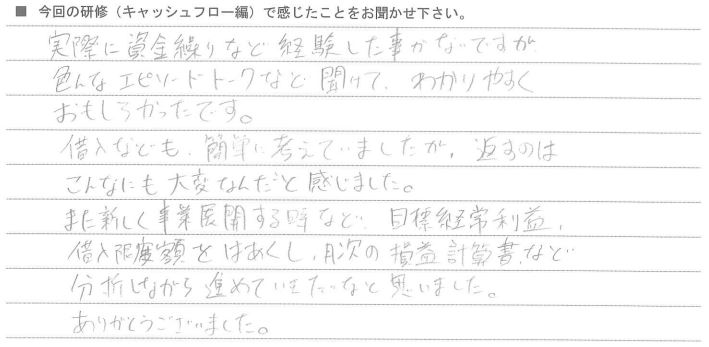 ■ 今回の研修（キャッシュフロー編）で感じたことをお聞かせ下さい。
実際に資金繰りなど経験した事がないですが
色んなエピソードトークなど聞けて、わかりやすく
おもしろかったです。
借入なども、簡単に考えていましたが、返すのは
こんなにも大変なんだと感じました。
また新しく事業展開する時など、目標経常利益、
借入限度額をはあくし、月次の損益計算書など
分析しながら進めていきたいなと思いました。
ありがとうございました。